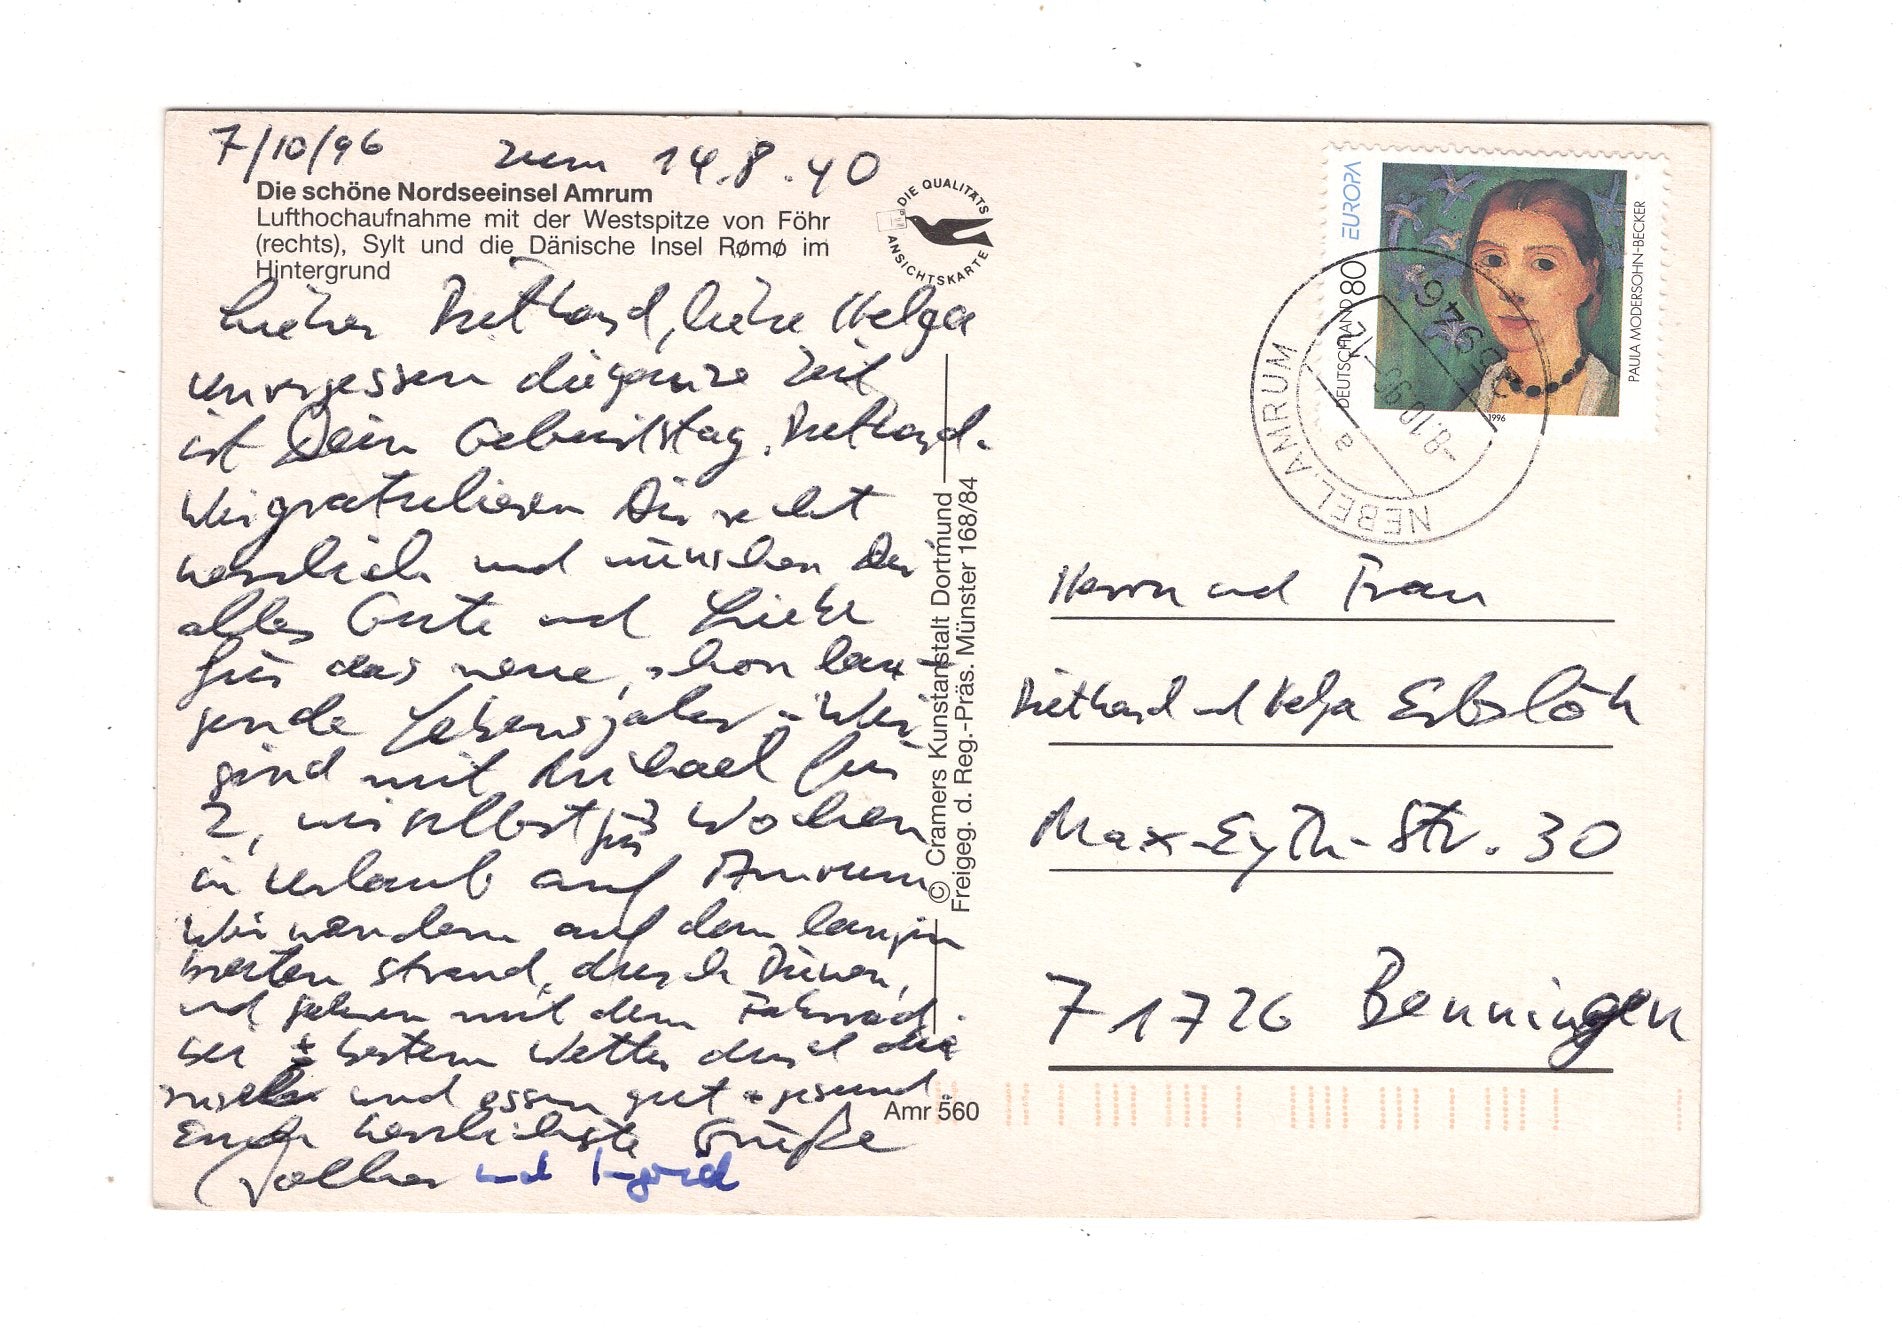 7/10/96 zum 14.8.40
Die schöne Nordseeinsel Amrum
Lufthochaufnahme mit der Westspitze von Föhr
(rechts), Sylt und die Dänische Insel Rømø im
Hintergrund
DIE QUALITÄTS
ANSICHTSKARTE
Lieber Diethard, liebe Helga
unvergessen die ganze Zeit
ist Dein Geburtstag, Diethard.
Wir gratulieren Dir recht
herzlich und wünschen Dir
alles Gute und Liebe
für das neue, schon lau-
fende Lebensjahr. - Wir
sind mit Michael für
2, wir selbst für 3 Wochen
in Urlaub auf Amrum
Wir wandern auf dem langen
breiten Strand, durch Dünen,
und fahren mit dem Fahrrad
bei ± bestem Wetter durch die
Insel und essen gut + gesund.
Euch herzlichste Grüße
Volker und Ingrid
© Cramers Kunstanstalt Dortmund
Freigeg. d. Reg.-Präs. Münster 168/84
Amr 560
EUROPA
DEUTSCHLAND 80
PAULA MODERSOHN-BECKER
1996
NEBEL, AMRUM
25946
-8.10.96-
a
Herrn und Frau
Diethard und Helga Erbslöh
Max-Eyth-Str. 30
71726 Benningen